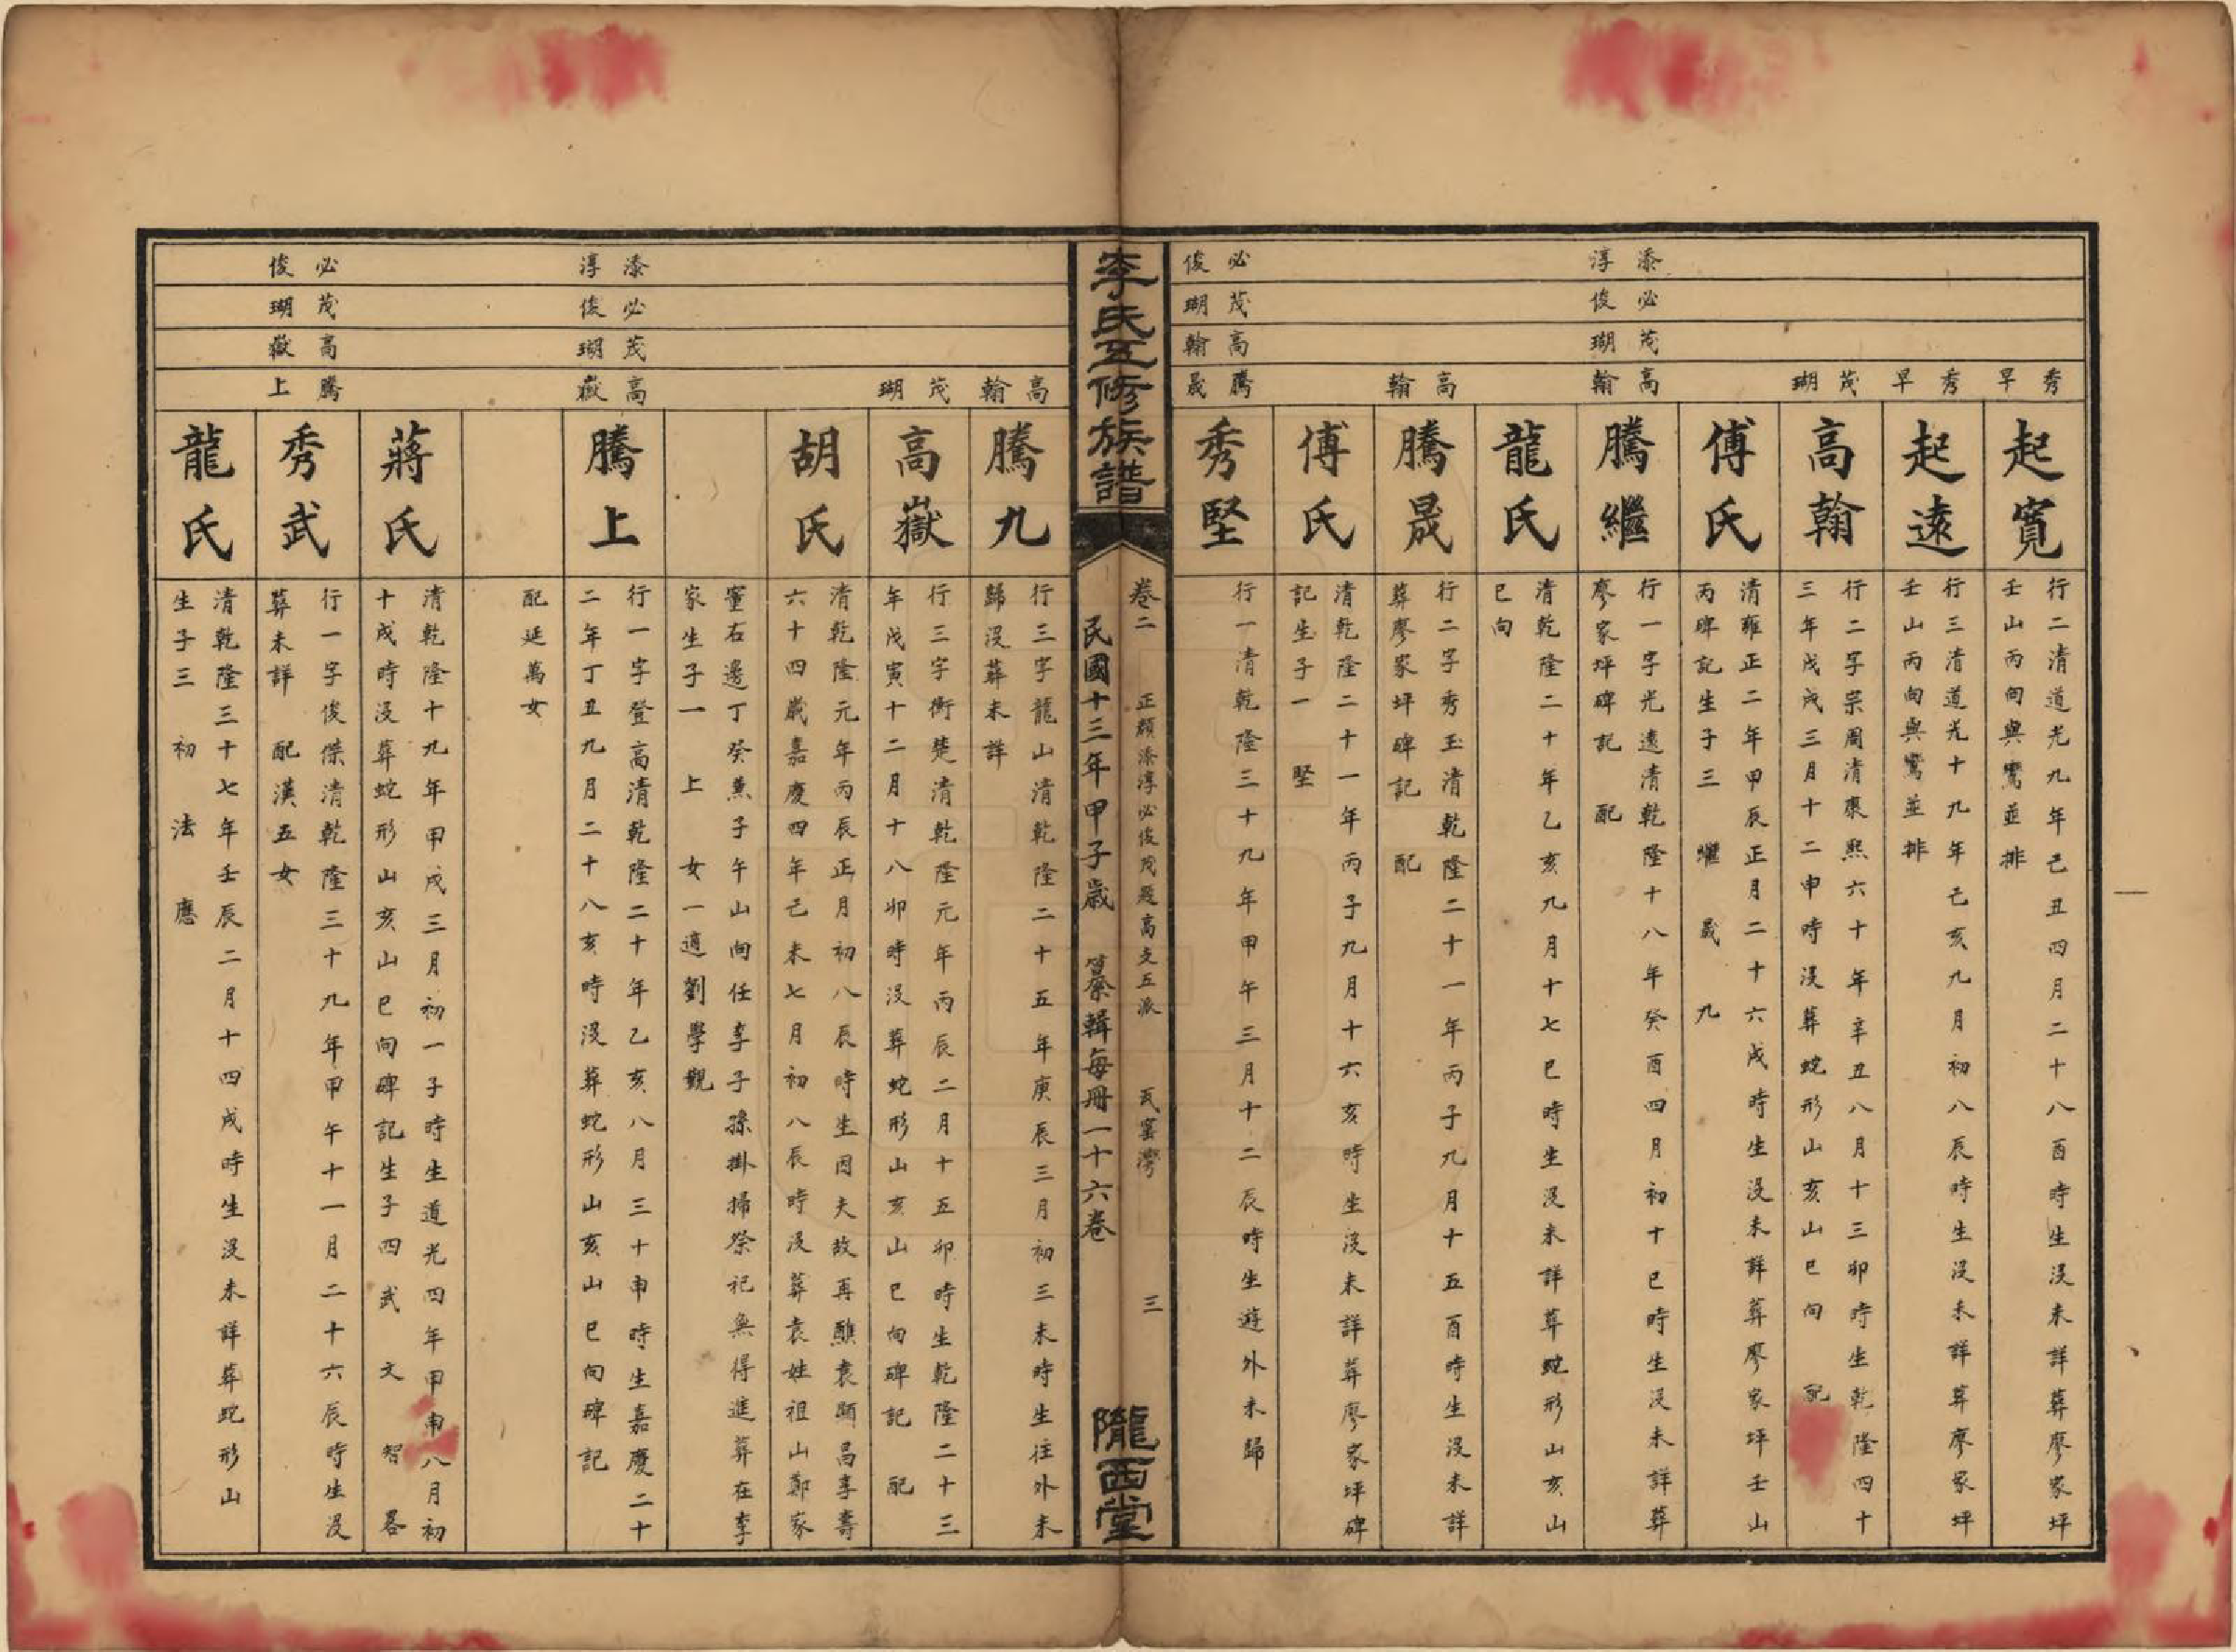 秀早
起寬
行二清道光九年己丑四月二十八酉時生沒未詳葬廖家坪
壬山丙向與鸞並排
秀早
起遠
行三清道光十九年己亥九月初八辰時生沒未詳葬廖家坪
壬山丙向與鸞並排
茂瑚
高翰
行二字宗周清康熙六十年辛丑八月十三卯時生乾隆四十
三年戊戌三月十二申時沒葬蛇形山亥山巳向 配
傅氏
清雍正二年甲辰正月二十六戌時生沒未詳葬廖家坪壬山
丙碑記生子三 繼 晟 九
添淳
必俊
茂瑚
高翰
騰繼
行一字光遠清乾隆十八年癸酉四月初十巳時生沒未詳葬
廖家坪碑記 配
龍氏
清乾隆二十年乙亥九月十七巳時生沒未詳葬蛇形山亥山
巳向
高翰
騰晟
行二字秀玉清乾隆二十一年丙子九月十五酉時生沒未詳
葬廖家坪碑記 配
傅氏
清乾隆二十一年丙子九月十六亥時生沒未詳葬廖家坪碑
記生子一 堅
必俊
茂瑚
高翰
騰晟
秀堅
行一清乾隆三十九年甲午三月十二辰時生遊外未歸
李氏五修族譜
卷二 正顏添淳必俊茂題高支五派 瓦窰灣 三
民國十三年甲子歲 纂輯每冊一十六卷
隴西堂
高翰
騰九
行三字龍山清乾隆二十五年庚辰三月初三未時生往外未
歸沒葬未詳
茂瑚
高嶽
行三字衡楚清乾隆元年丙辰二月十五卯時生乾隆二十三
年戊寅十二月十八卯時沒葬蛇形山亥山巳向碑記 配
胡氏
清乾隆元年丙辰正月初八辰時生因夫故再醮袁顯昌李壽
六十四歲嘉慶四年己未七月初八辰時沒葬袁姓祖山鄭家
窰右邊丁癸兼子午山向任李子孫掛掃祭祀無得進葬在李
家生子一 上 女一適劉學觀
添淳
必俊
茂瑚
高嶽
騰上
行一字登高清乾隆二十年乙亥八月三十申時生嘉慶二十
二年丁丑九月二十八亥時沒葬蛇形山亥山巳向碑記
配延萬女
蔣氏
清乾隆十九年甲戌三月初一子時生道光四年甲申八月初
十戌時沒葬蛇形山亥山巳向碑記生子四 武 文 智 畧
必俊
茂瑚
高嶽
騰上
秀武
行一字俊傑清乾隆三十九年甲午十一月二十六辰時生沒
葬未詳 配漢五女
龍氏
清乾隆三十七年壬辰二月十四戌時生沒未詳葬蛇形山
生子三 初 法 應